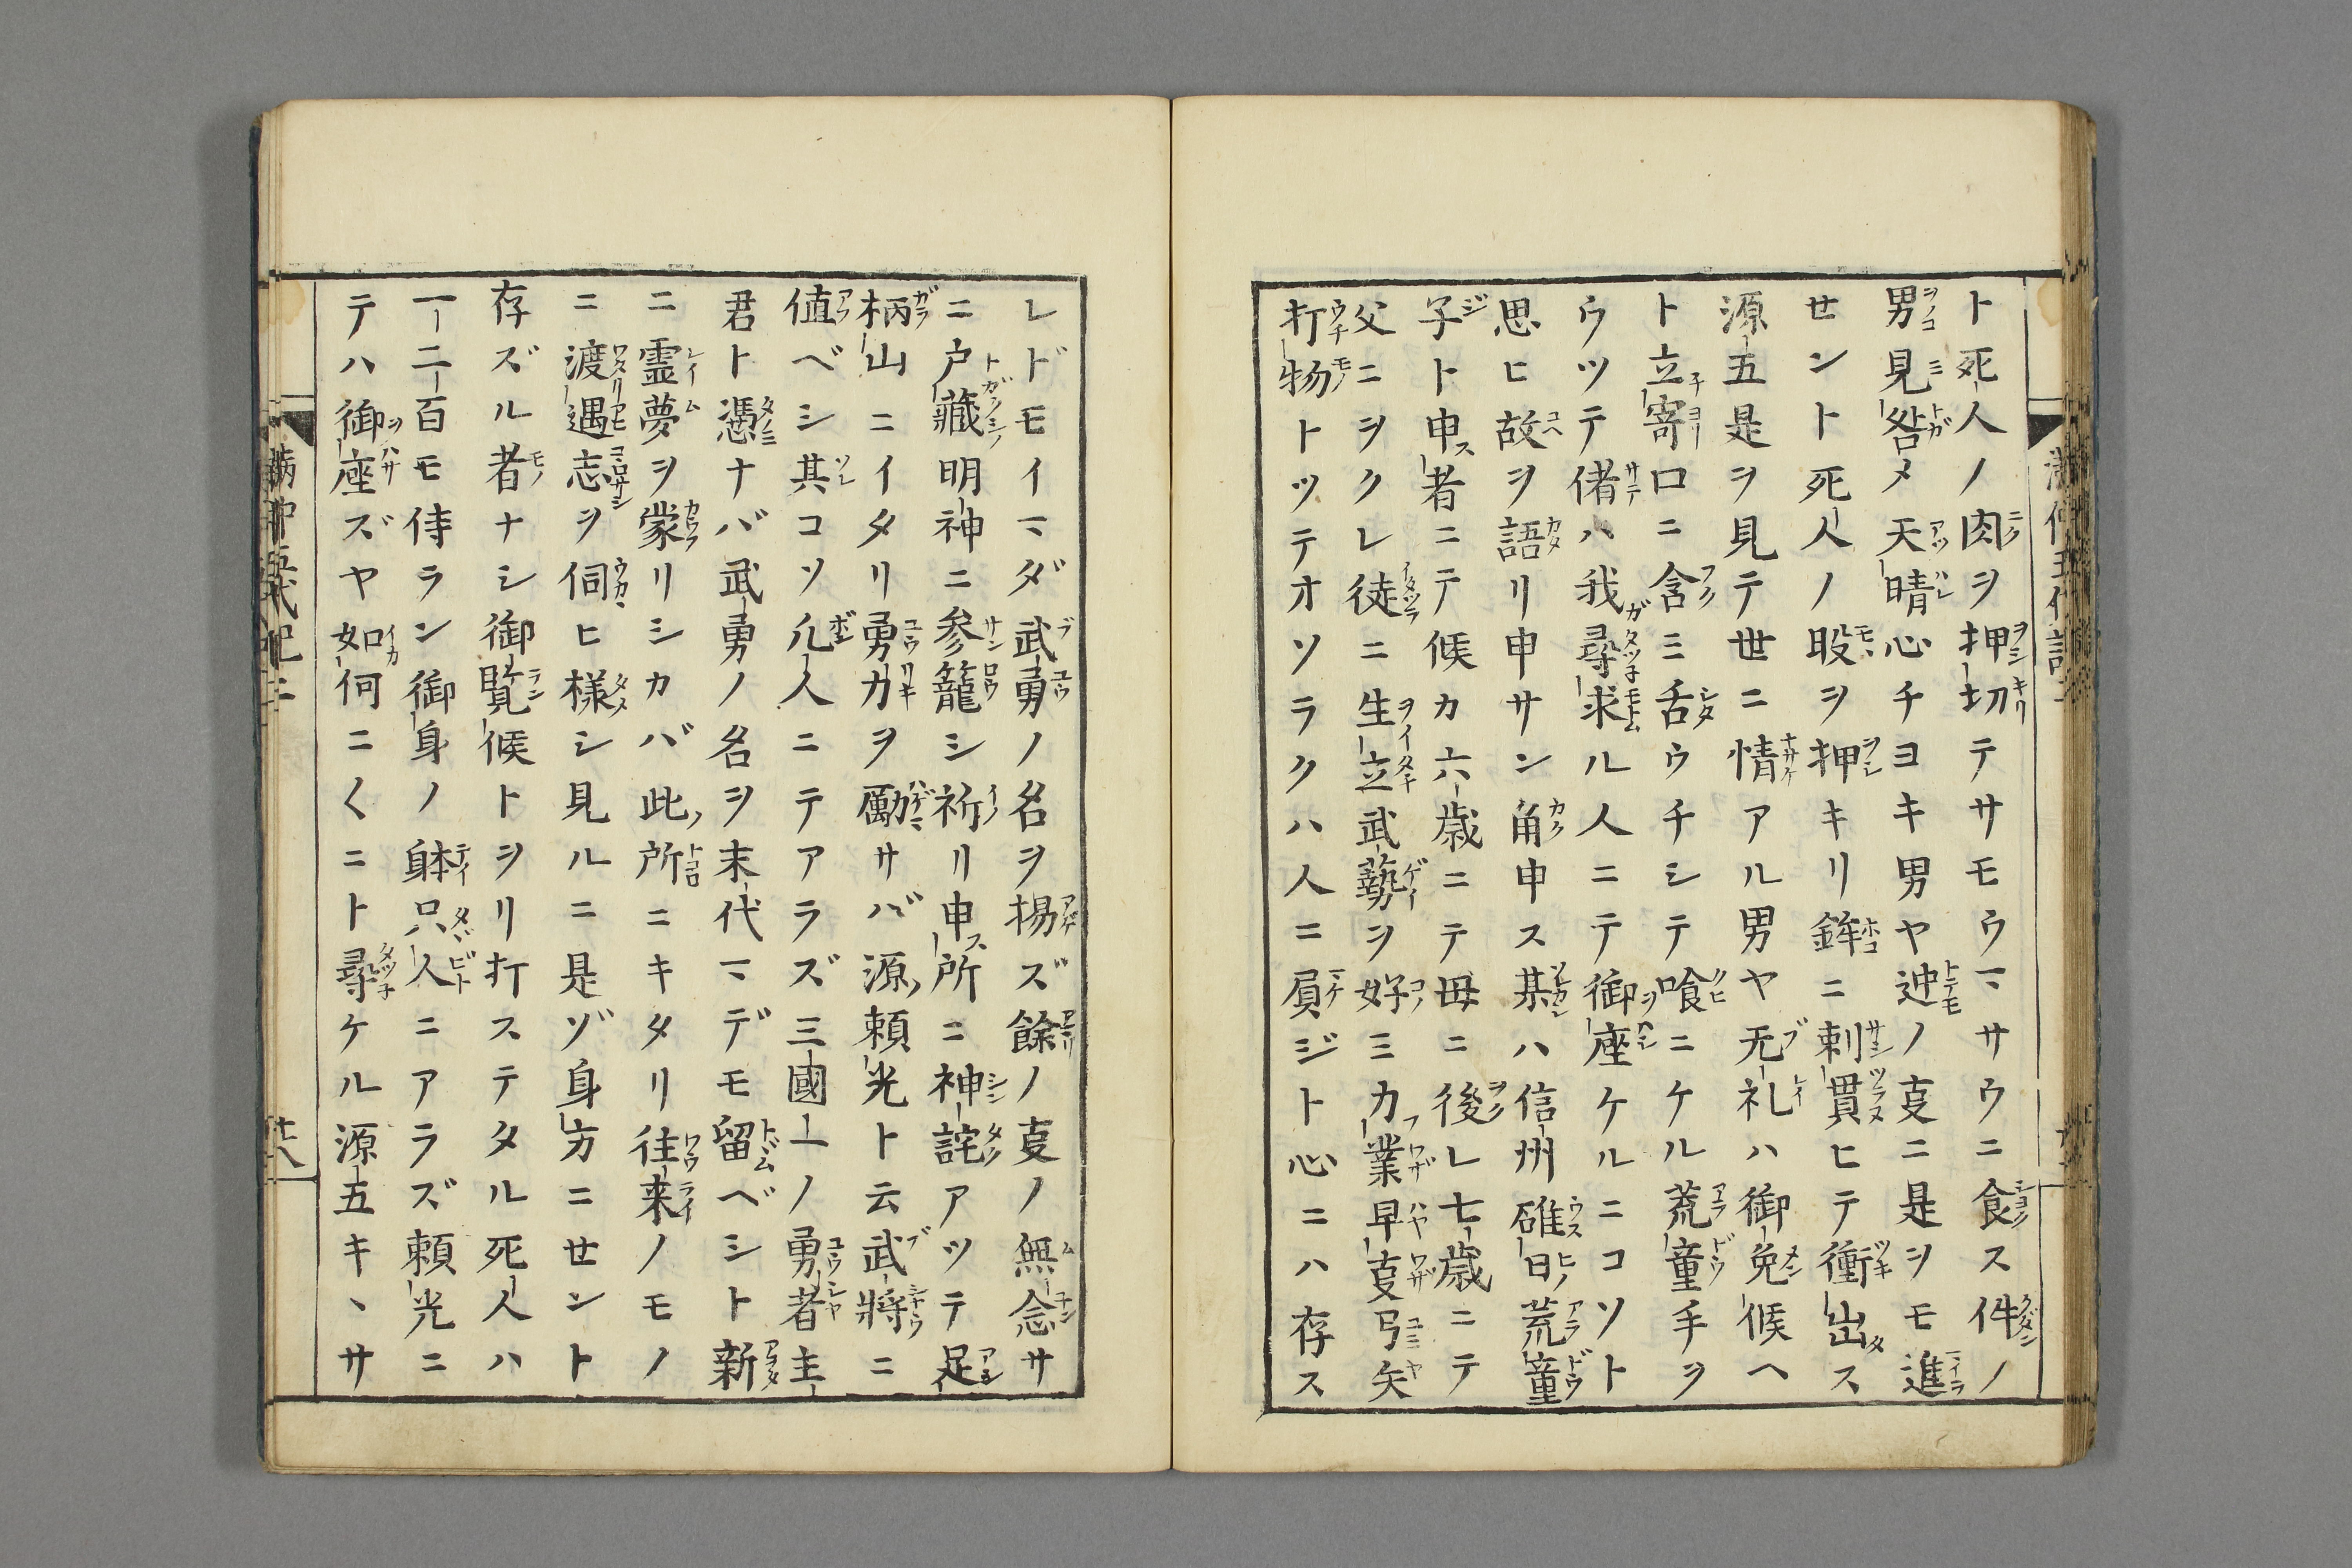 ト死人ノ肉ヲ押切テサモウマサウニ食ス件ノ
男見咎メ天晴心チヨキ男ヤ迚ノ叓ニ是ヲモ進
セント死人ノ股ヲ押キリ鉾ニ刺貫ヒテ衝出ス
源五是ヲ見テ世ニ情アル男ヤ无礼ハ御免候ヘ
ト立寄口ニ含ミ舌ウチシテ喰ニケル荒童手ヲ
ウツテ偖ハ我尋求ル人ニテ御座ケルニコソト
思ヒ故ヲ語リ申サン角申ス某ハ信州碓日荒童
子ト申者ニテ候カ六歳ニテ母ニ後レ七歳ニテ
父ニヲクレ徒ニ生立武藝ヲ好ミ力業早叓弓矢
打物トツテオソラクハ人ニ屓ジト心ニハ存ス
レドモイマダ武勇ノ名ヲ揚ズ餘ノ叓ノ無念サ
ニ戸蔵明神ニ参籠シ祈リ申所ニ神詫アツテ足
柄山ニイタリ勇力ヲ勵サバ源頼光ト云武將ニ
値ベシ其コソ凢人ニテアラズ三國一ノ勇者主
君ト憑ナバ武勇ノ名ヲ末代マデモ留ベシト新
ニ霊夢ヲ蒙リシカバ此所ニキタリ往来ノモノ
ニ渡遇志ヲ伺ヒ様シ見ルニ是ゾ身方ニセント
存ズル者ナシ御覧候トヲリ打ステタル死人ハ
一二百モ侍ラン御身ノ躰只人ニアラズ頼光ニ
テハ御座ズヤ如何ニ〱ニト尋ケル源五キヽサ